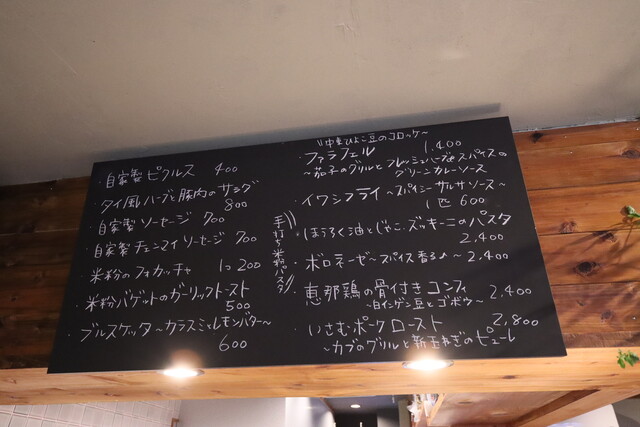 ・自家製ピクルス 400
・タイ風ハーブと豚肉のサラダ
800
・自家製ソーセージ 700
・自家製チェンマイソーセージ 700
・米粉のフォカッチャ 1つ200
・米粉バゲットのガーリックトースト
500
・ブルスケッタ〜カラスミとレモンバター〜
600
手打ち米粉パスタ
中東ひよこ豆のコロッケ〜
・ファラフェル 1,400
〜茄子のグリルとフレッシュハーブとスパイスの
グリーンカレーソース
・イワシフライ〜スパイシーサルサソース〜
1匹 600
・ほうろく油とじゃこ、ズッキーニのパスタ
2,400
・ボロネーゼ〜スパイス香る♪〜 2,400
・恵那鶏の骨付きコンフィ
〜白インゲン豆とゴボウ〜 2,400
・いさむポークロースト 2,800
〜カブのグリルと新玉ねぎのピューレ